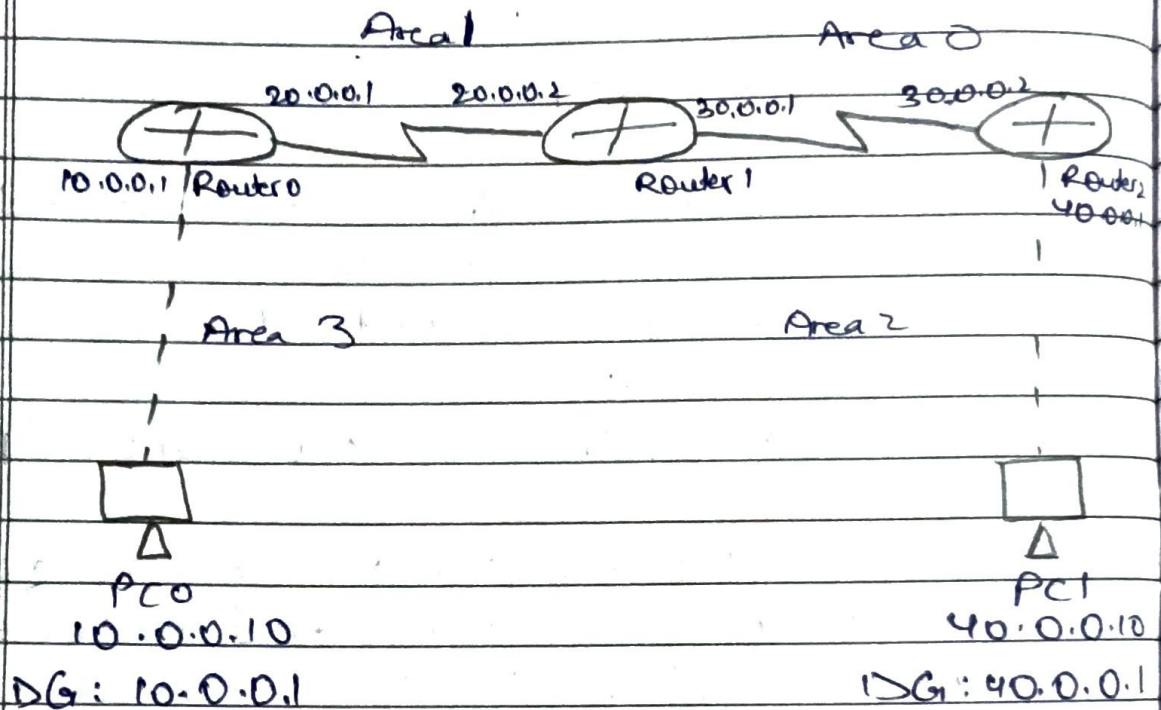 Area 1 Area 0
20.0.0.1 20.0.0.2 30.0.0.1 30.0.0.2
10.0.0.1 Router0 Router 1 Router2
40.0.0.1
Area 3 Area 2
PC0 PC1
10.0.0.10 40.0.0.10
DG: 10.0.0.1 DG: 40.0.0.1